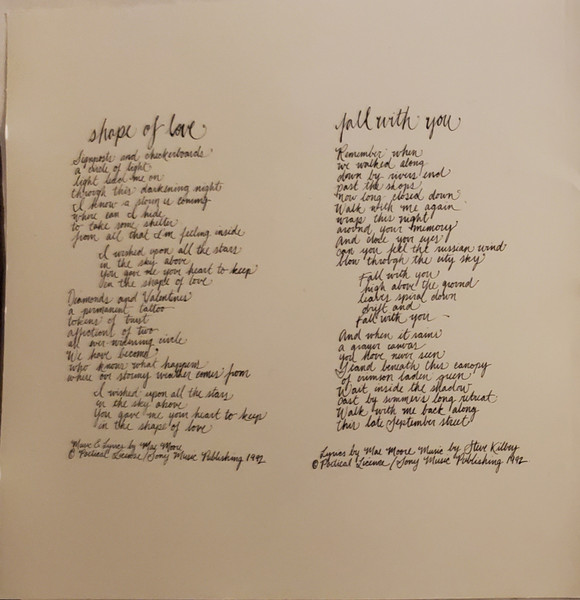 shape of love
Signposts and checkerboards
a circle of light
light lead me on
through this darkening night
I know a storm is coming
where can I hide
to take some shelter
from all that I'm feeling inside
I wished upon all the stars
in the sky above
you gave me your heart to keep
in the shape of love
Diamonds and Valentines
a permanent tattoo
tokens of trust
affections of two
an ever-widening circle
We have become
who knows what happens
where our stormy weather comes from
I wished upon all the stars
in the sky above
You gave me your heart to keep
in the shape of love
Music & Lyrics by Mae Moore
© Poetical License/Sony Music Publishing 1992
fall with you
Remember when
we walked along
down by rivers end
past the shops
now long closed down
Walk with me again
wraps this night
around your memory
And close your eyes
can you feel the russian wind
blow through the city sky
Fall with you
high above the ground
leaves spiral down
drift and
fall with you
And when it rains
a grayer canvas
you have never seen
Stand beneath this canopy
of crimson laden green
Wait inside the shadow
cast by summer's long retreat
Walk with me back along
this late September street
Lyrics by Mae Moore Music by Steve Kilbey
© Poetical License/Sony Music Publishing 1992